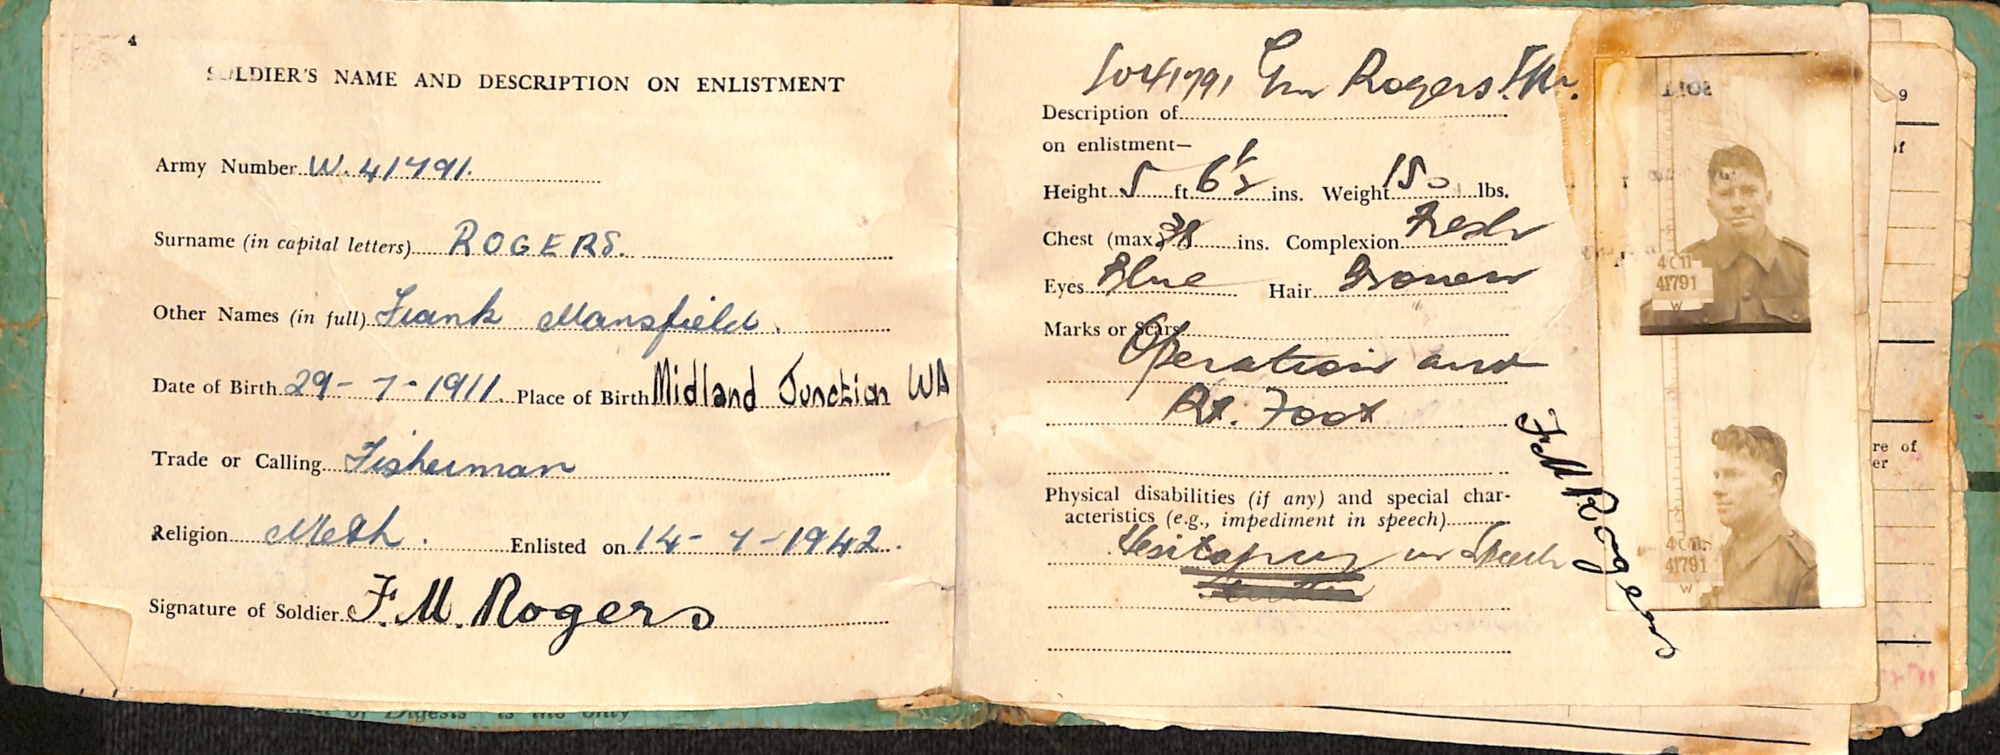 4
SOLDIER'S NAME AND DESCRIPTION ON ENLISTMENT
Army Number W. 41791.
Surname (in capital letters) ROGERS.
Other Names (in full) Frank Mansfield.
Date of Birth 29-7-1911. Place of Birth Midland Junction WA
Trade or Calling Fisherman
Religion Meth. Enlisted on 14-7-1942.
Signature of Soldier F. M. Rogers
41791 Gnr Rogers F.M.
Description of
on enlistment—
Height 5 ft 6 1/2 ins. Weight 150 lbs.
Chest (max. 38 ins. Complexion Fresh
Eyes Blue Hair Brown
Marks or Scars
Operation and
Rt. Foot
Physical disabilities (if any) and special char-
acteristics (e.g., impediment in speech)
in Speech
F M Rogers
4C11
41791
W
4C11
41791
W
9
of
re of
er
of Digests is the only